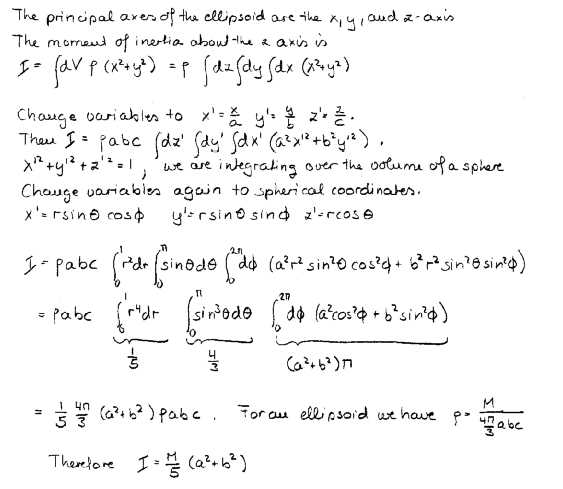 The principal axes of the ellipsoid are the x, y, and z-axis
The moment of inertia about the z axis is
I = ∫dV ρ (x²+y²) = ρ ∫dz∫dy∫dx (x²+y²)
Change variables to x' = x/a y' = y/b z' = z/c.
Then I = ρabc ∫dz' ∫dy' ∫dx' (a²x'²+b²y'²).
x'²+y'²+z'² = 1, we are integrating over the volume of a sphere
Change variables again to spherical coordinates.
x' = r sinθ cosφ y' = r sinθ sinφ z' = r cosθ
I = ρabc ∫₀¹ r²dr ∫₀^π sinθdθ ∫₀^2π dφ (a²r² sin²θ cos²φ + b² r² sin²θ sin²φ)
= ρabc ∫₀¹ r⁴dr ∫₀^π sin³θdθ ∫₀^2π dφ (a²cos²φ + b²sin²φ)
1/5 4/3 (a²+b²)π
= 1/5 4π/3 (a²+b²) ρabc. For an ellipsoid we have ρ = M/(4π/3 abc)
Therefore I = M/5 (a²+b²)